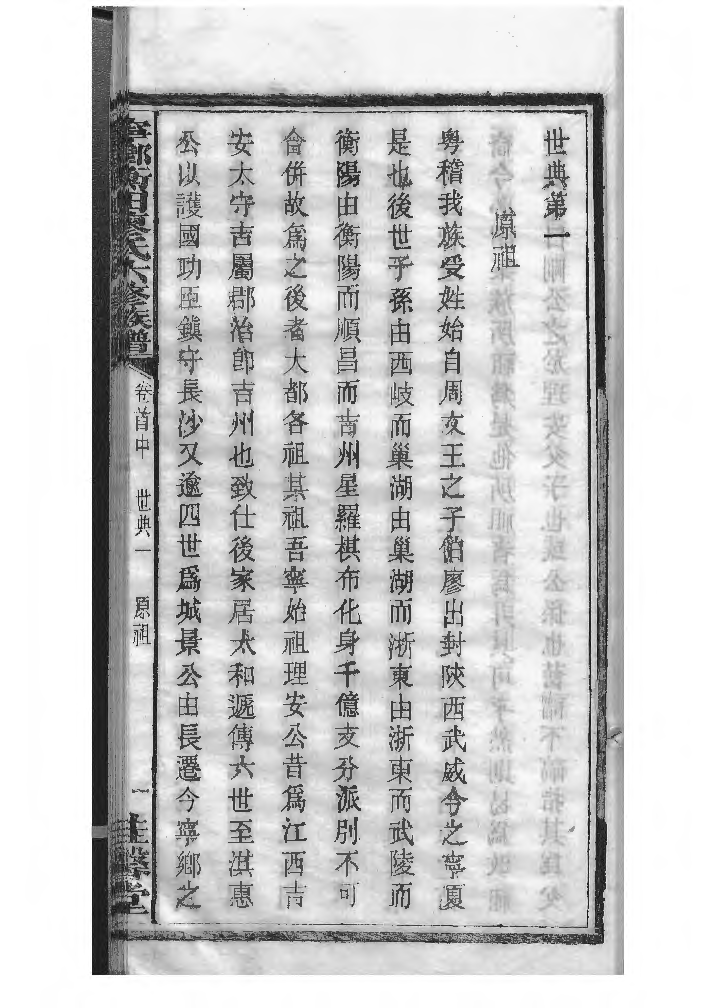 世典第一
原祖
粵稽我族受姓始自周文王之子伯廖出封陝西武威今之寧夏
是也後世子孫由西岐而巢湖由巢湖而浙東由浙東而武陵而
衡陽由衡陽而順昌而吉州星羅棋布化身千億支分派別不可
合併故爲之後者大都各祖其祖吾寧始祖理安公昔爲江西吉
安太守吉屬郡治卽吉州也致仕後家居太和遞傳六世至淇惠
公以護國功臣鎮守長沙又逾四世爲城景公由長遷今寧鄉之
寧鄉衡田廖氏六修族譜
卷首中 世典一 原祖
一
堂